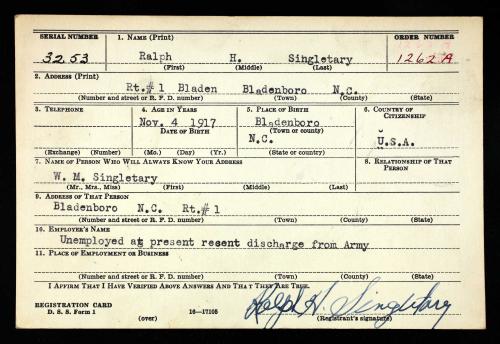 SERIAL NUMBER 1. NAME (Print) ORDER NUMBER
3253 Ralph H. Singletary 1262 A
(First) (Middle) (Last)
2. ADDRESS (Print)
Rt.#1 Bladen Bladenboro N.C.
(Number and street or R. F. D. number) (Town) (County) (State)
3. TELEPHONE 4. AGE IN YEARS 5. PLACE OF BIRTH 6. COUNTRY OF CITIZENSHIP
Nov. 4 1917 Bladenboro
DATE OF BIRTH (Town or county)
N.C. U.S.A.
(Exchange) (Number) (Mo.) (Day) (Yr.) (State or country)
7. NAME OF PERSON WHO WILL ALWAYS KNOW YOUR ADDRESS 8. RELATIONSHIP OF THAT PERSON
W. M. Singletary
(Mr., Mrs., Miss) (First) (Middle) (Last)
9. ADDRESS OF THAT PERSON
Bladenboro N.C. Rt.#1
(Number and street or R. F. D. number) (Town) (County) (State)
10. EMPLOYER'S NAME
Unemployed at present resent discharge from Army
11. PLACE OF EMPLOYMENT OR BUSINESS
(Number and street or R. F. D. number) (Town) (County) (State)
I AFFIRM THAT I HAVE VERIFIED ABOVE ANSWERS AND THAT THEY ARE TRUE.
REGISTRATION CARD
D. S. S. Form 1 16—17105 Ralph H. Singletary
(over) (Registrant's signature)